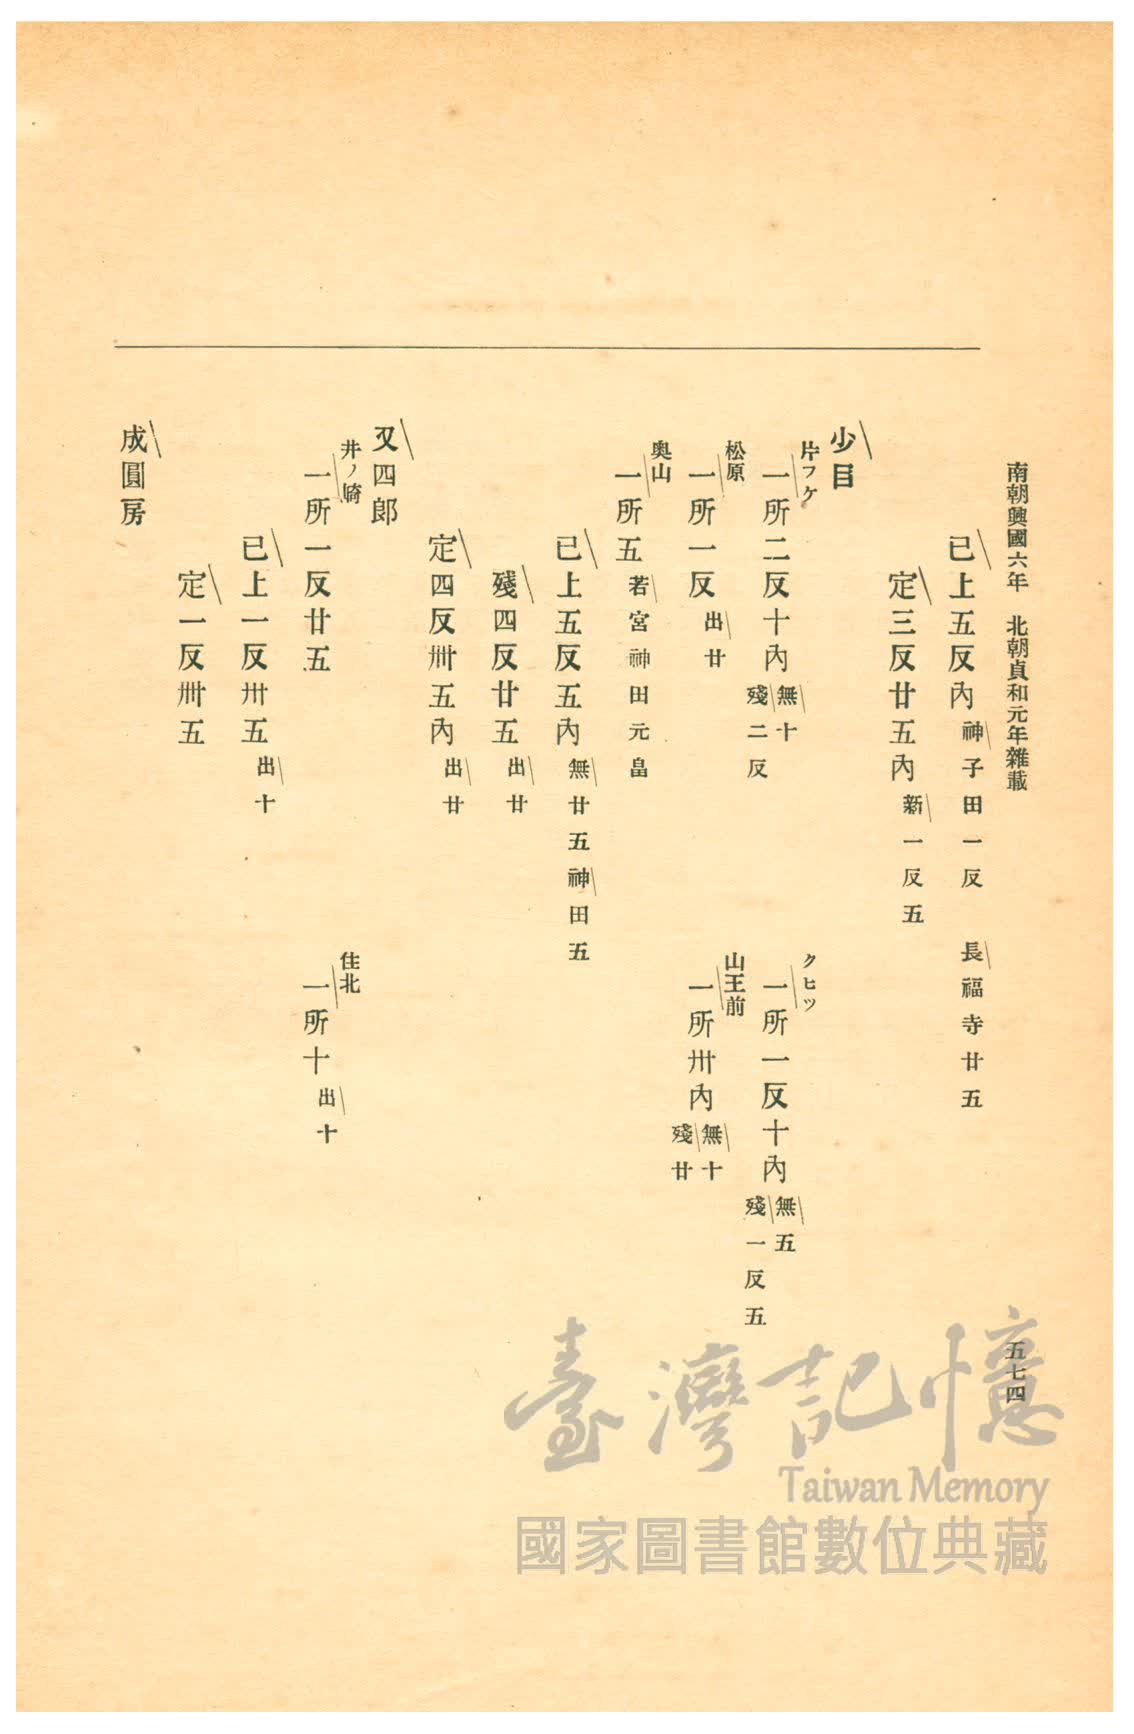 南朝興國六年　北朝貞和元年雜載
五七四
已上五反內神子田一反　長福寺廿五
定三反廿五內新一反五
少目
片フケ
一所二反十內無十
殘二反
クヒツ
一所一反十內無五
殘一反五
松原
一所一反出廿
山王前
一所卅內無十
殘廿
奧山
一所五若宮神田元畠
已上五反五內無廿五神田五
殘四反廿五出廿
定四反卌五內出廿
又四郎
井ノ𡽶
一所一反廿五
住北
一所十出十
已上一反卅五出十
定一反卌五
成圓房
臺灣記憶
Taiwan Memory
國家圖書館數位典藏